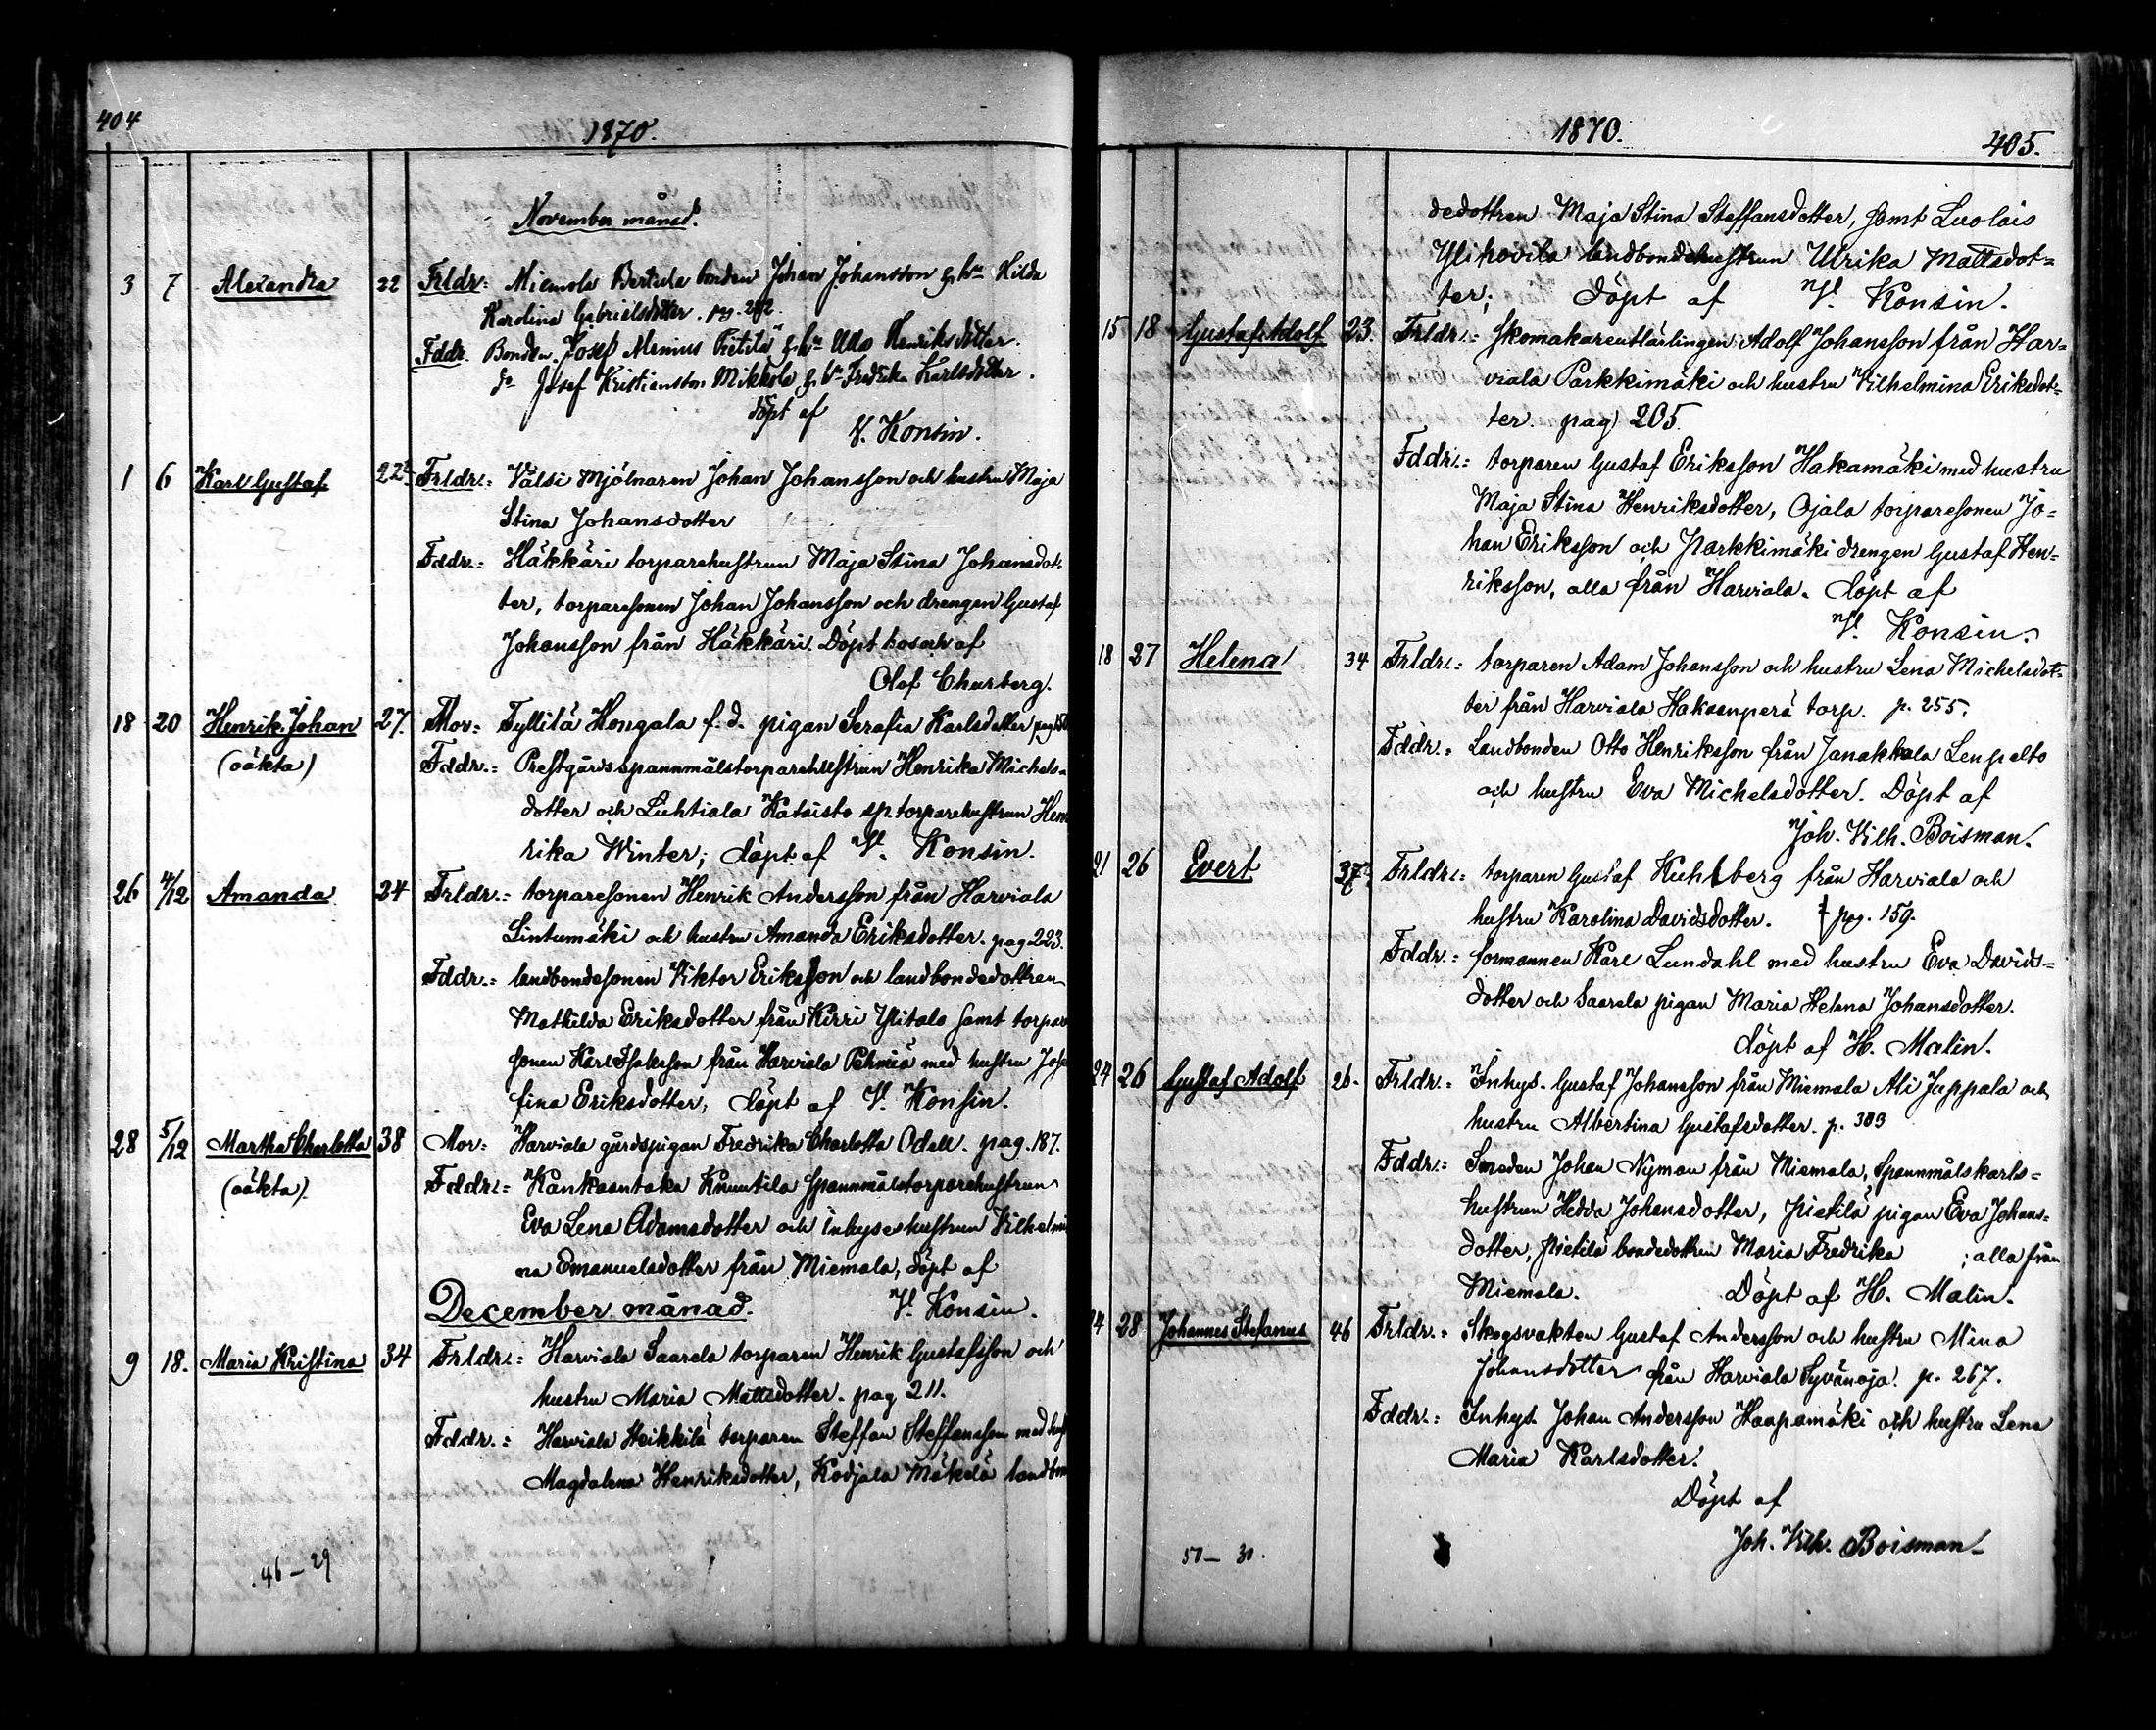 404
1870.
November månad.
3 7 Alexandra 22 Frldr: Miemola Bertula bonden Johan Johansson & hu Hilda
Karolina Gabrielsdotter. pag. 282.
Fddr. Bonden Josef Menius Pietilä & hu Uda Henriksdotter.
do Josef Kristiansson Mikkola & hu Fredrika Karlsdotter.
döpt af
V. Konsin.
1 6 Karl Gustaf 22 Frldr.: Valsi Mjölnaren Johan Johansson och hustru Maja
Stina Johansdotter
Fddr.: Häkkäri torparehustrun Maja Stina Johansdot-
ter, torparesonen Johan Johansson och drengen Gustaf
Johansson från Häkkäri. Döpt af
Olof Churberg.
18 20 Henrik Johan 27. Mor: Tyllilä Hongala f. d. pigan Serafia Karlsdotter
(oäkta) Fddr.: Prestgårds spannmålstorparehustrun Henrika Michels-
dotter och Luhtiala Kataisto sp. torparehustrun Hen
rika Winter; döpt af V. Konsin.
26 4/12 Amanda 24 Frldr.: torparesonen Henrik Andersson från Harviala
Lintumäki och hustru Amanda Eriksdotter. pag 223.
Fddr.: landbondesonen Viktor Eriksson och landbondedottren
Mathilda Eriksdotter från Kirri Ylitalo samt torpare
sonen Karl Isaksson från Harviala Pehmiä med hustru Jose
fina Eriksdotter, döpt af V. Konsin.
28 5/12 Martha Charlotta 38 Mor: Harviala gårdspigan Fredrika Charlotta Odell. pag. 187.
(oäkta). Fddr.: Kankaantaka Knuutila spannmålstorparehustrun
Eva Lena Adamsdotter och inhyseshustrun Vilhelmi
na Emanuelsdotter från Miemala, döpt af
December månad. V. Konsin.
9 18. Maria Kristina 34 Frldr.: Harviala Saarela torparen Henrik Gustafsson och
hustru Maria Mattsdotter. pag 211.
Fddr.: Harviala Heikkilä torparen Steffan Steffansson med hus
Magdalena Henriksdotter, Kodjala Mäkelä landbon
46 — 29
1870.
405.
dedottren Maja Stina Steffansdotter, samt Luolais
Ylikovila landbondehustrun Ulrika Mattsdot=
ter; döpt af V. Konsin.
15 18 Gustaf Adolf 23. Frldr.: Skomakareutlärlingen Adolf Johansson från Har=
viala Parkkimäki och hustru Vilhelmina Eriksdot=
ter. pag 205
Fddr.: torparen Gustaf Eriksson Hakamäki med hustru
Maja Stina Henriksdotter, Ojala torparesonen Jo=
han Eriksson och Parkkimäki drengen Gustaf Hen=
riksson, alla från Harviala. döpt af
V. Konsin.
18 27 Helena 34 Frldr.: torparen Adam Johansson och hustru Lena Michelsdot=
ter från Harviala Haksenperä torp. p. 255.
Fddr.: Landbonden Otto Henriksson från Janakkala Lenspelto
och hustru Eva Michelsdotter. Döpt af
Joh. Vilh. Boisman.
21 26 Evert 37. Frldr.: torparen Gustaf Kuhlberg från Harviala och
hustru Karolina Davidsdotter. pag. 159.
Fddr.: formannen Karl Lundahl med hustru Eva Davids=
dotter och Saarela pigan Maria Helena Johansdotter.
döpt af H. Malin.
24 26 Gustaf Adolf 26. Frldr.: Inhys. Gustaf Johansson från Miemala Ali Juppala och
hustru Albertina Gustafsdotter. p. 303
Fddr.: Smeden Johan Nyman från Miemala, Spannmålskarls=
hustrun Hedda Johansdotter, Pietilä pigan Eva Johans=
dotter, Pietilä bondedottren Maria Fredrika ; alla från
Miemala. Döpt af H. Malin.
24 28 Johannes Stefanus 46 Frldr.: Skogsvakten Gustaf Andersson och hustru Mina
Johansdotter från Harviala Syvänoja. p. 267.
Fddr.: Inhys. Johan Andersson Haapamäki och hustru Lena
Maria Karlsdotter.
Döpt af
Joh. Vilh. Boisman
50 — 30.